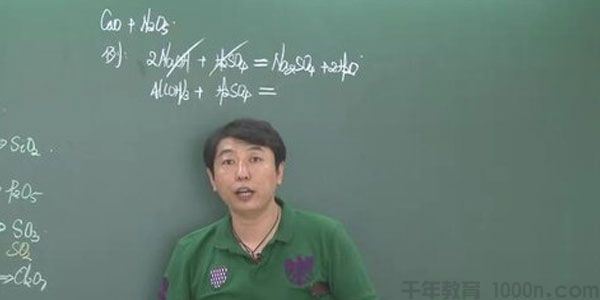 CaO + N₂O₅.
例: 2NaOH + H₂SO₄ = Na₂SO₄ + 2H₂O
Al(OH)₃ + H₂SO₄ =
⇒ SiO₂
⇒ P₂O₅
⇒ SO₃
SO₂
⇒ Cl₂O₇
千年教育 1000n.com